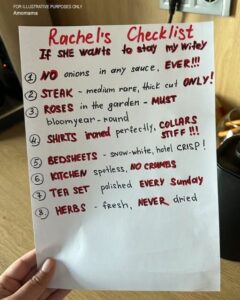 FOR ILLUSTRATIVE PURPOSES ONLY
Amomama
Rachel's Checklist
If SHE wants to stay my wifey
① NO onions in any sauce, EVER!!!
② STEAK - medium rare, thick cut ONLY!
③ ROSES in the garden - MUST
bloom year-round
④ SHIRTS ironed perfectly, COLLARS
STIFF!!!
⑤ BEDSHEETS - snow-white, hotel CRISP!
⑥ KITCHEN spotless, NO CRUMBS
⑦ TEA SET polished EVERY Sunday
⑧ HERBS - fresh, NEVER dried